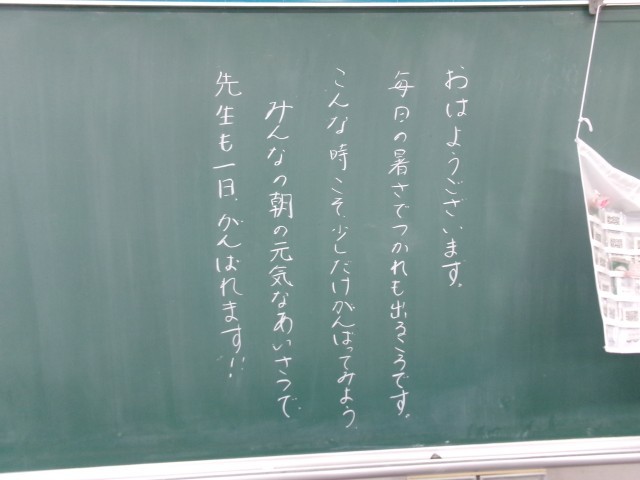 おはようございます。
毎日の暑さでつかれも出るころです。
こんな時こそ、少しだけがんばってみよう。
みんなの朝の元気なあいさつで、
先生も一日、がんばれます!!